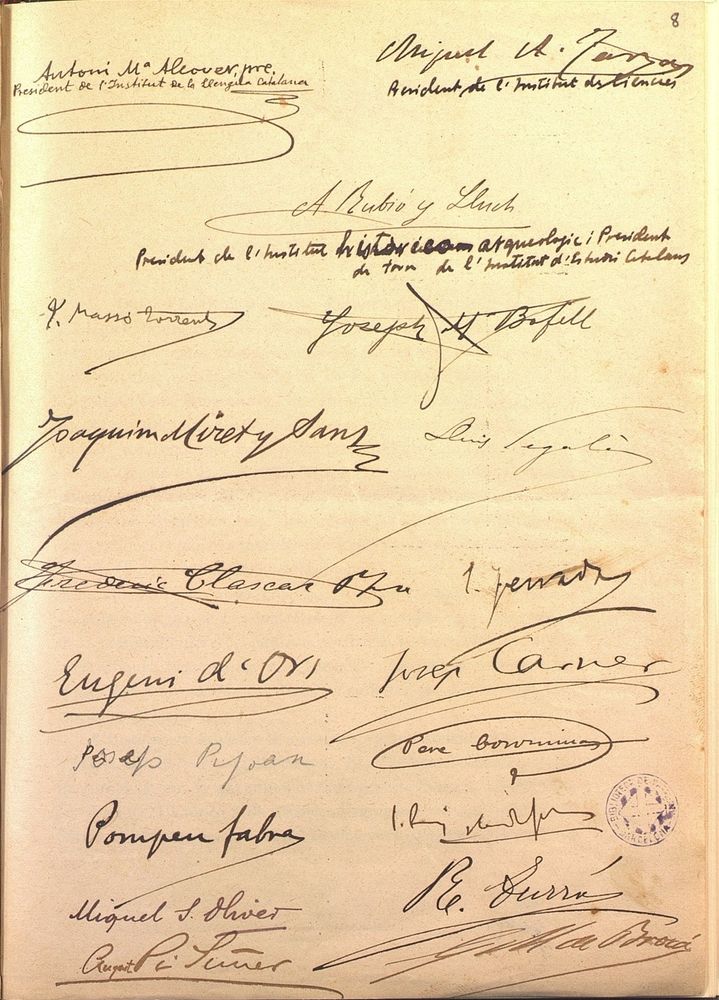 8
Antoni Mª Alcover, pre.
President de l'Institut de la Llengua Catalana
Miquel A. Fargas
President de l'Institut de Ciencies
A Rubió y Lluch
President de l'Institut històrico arqueologic i President
de torn de l'Institut d'Estudis Catalans
J. Massó Torrents
Joseph Mª Bofill
Joaquim Miret y Sans
Lluis Segalá
Frederic Clascar
Eugeni d'Ors
Josep Carner
Josep Pijoan
Pere Coromines
Pompeu Fabra
J. Puig
Miquel S. Oliver
August Pi Suñer
de Brocá
BARCELONA